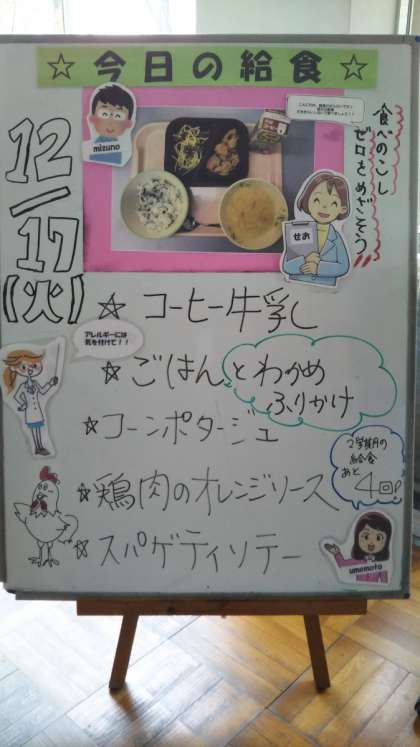 ☆今日の給食☆
mizuno
食べのこし
ゼロをめざそう!!
せお
12/17(火)
☆コーヒー牛乳
アレルギーには
気を付けて!!
☆ごはんとわかめ
ふりかけ
☆コーンポタージュ
2学期の
給食
あと
4回!
☆鶏肉のオレンジソース
☆スパゲティソテー
umemoto